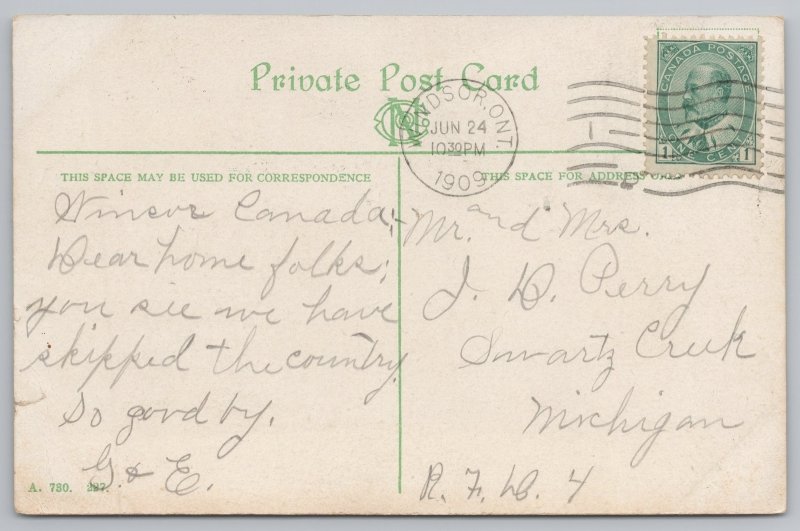 Private Post Card
WINDSOR, ONT.
JUN 24
10 30 PM
1909
CANADA POSTAGE
ONE CENT
1 1
THIS SPACE MAY BE USED FOR CORRESPONDENCE
THIS SPACE FOR ADDRESS ONLY
Winsor Canada;-
Dear home folks;
you see we have
skipped the country.
So good by.
G. & E.
Mr. and Mrs.
J. D. Perry
Swartz Creek
Michigan
R. F. D. 4
A. 730. 227.